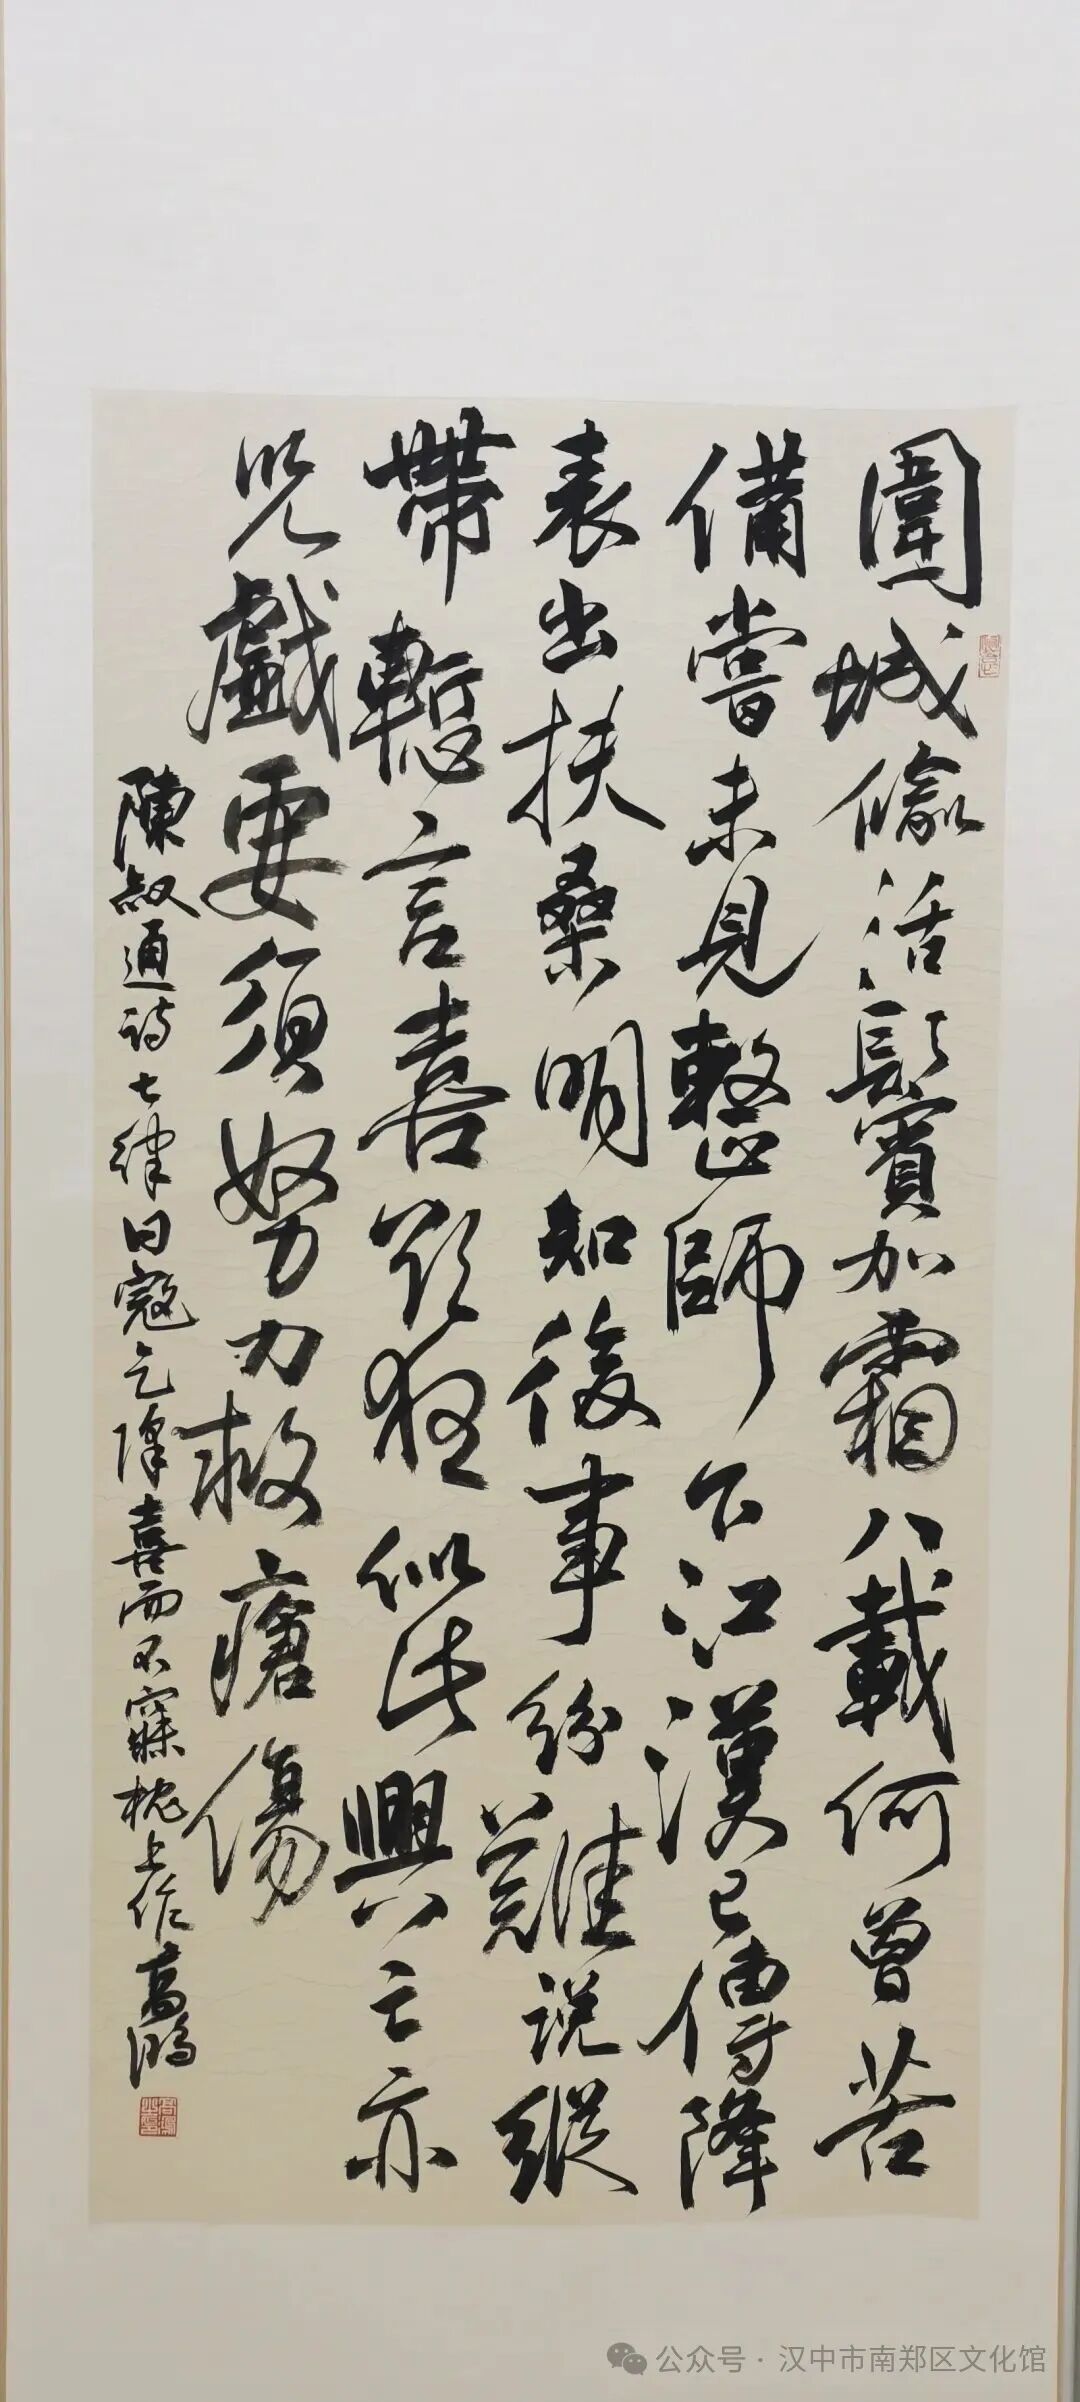 圍城偷活鬢加霜八載何曾苦
備嘗未見整師下江漢已傳降
表出扶桑明知後事紛難説縱
帶慙言喜欲狂似此興亡亦
兒戲要須努力救瘡傷
陳叔通詩七律日寇乞降喜而不寐枕上作高鴻
公众号·汉中市南郑区文化馆